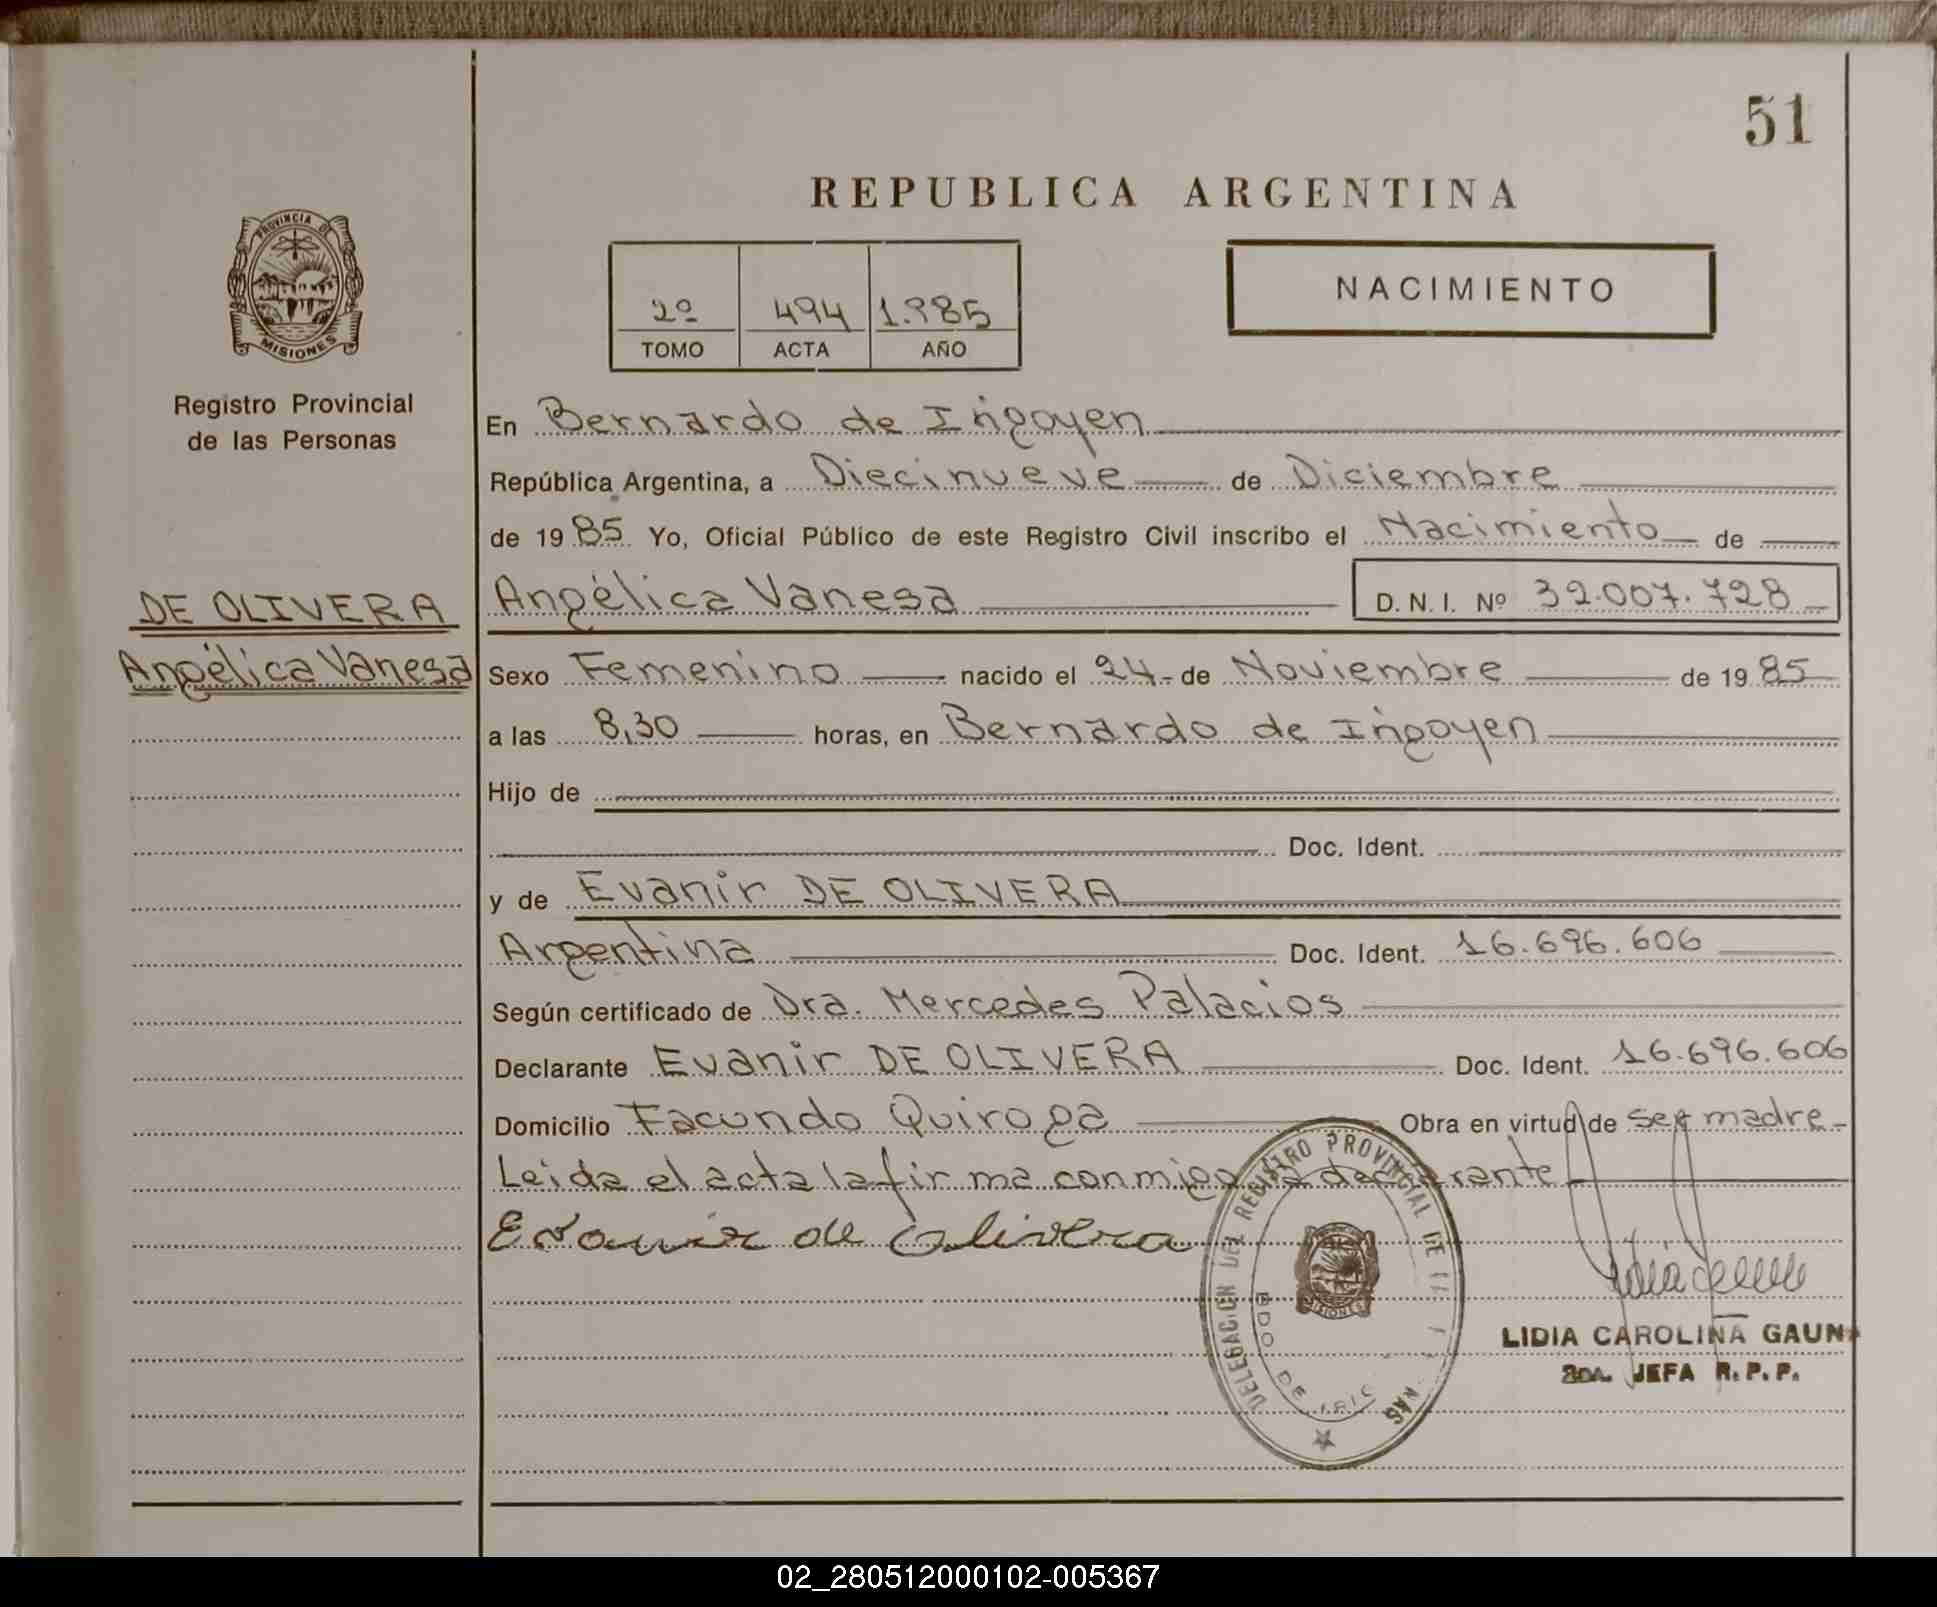 51
REPUBLICA ARGENTINA
PROVINCIA DE
MISIONES
Registro Provincial
de las Personas
2º 494 1.985
TOMO ACTA AÑO
NACIMIENTO
En Bernardo de Irigoyen
República Argentina, a Diecinueve de Diciembre
de 1985 Yo, Oficial Público de este Registro Civil inscribo el Nacimiento de
DE OLIVERA
Angélica Vanesa
Angélica Vanesa D.N.I. Nº 32.007.728
Sexo Femenino nacido el 24 de Noviembre de 1985
a las 8,30 horas, en Bernardo de Irigoyen
Hijo de
Doc. Ident.
y de Evanir DE OLIVERA
Argentina Doc. Ident. 16.696.606
Según certificado de Dra. Mercedes Palacios
Declarante Evanir DE OLIVERA Doc. Ident. 16.696.606
Domicilio Facundo Quiroga Obra en virtud de ser madre
Leida el acta la firma conmigo la declarante
Evanir de Olivera
DELEGACION DEL REGISTRO PROVINCIAL DE
BDO DE
MISIONES
LIDIA CAROLINA GAUNA
2DA. JEFA R.P.P.
02_280512000102-005367